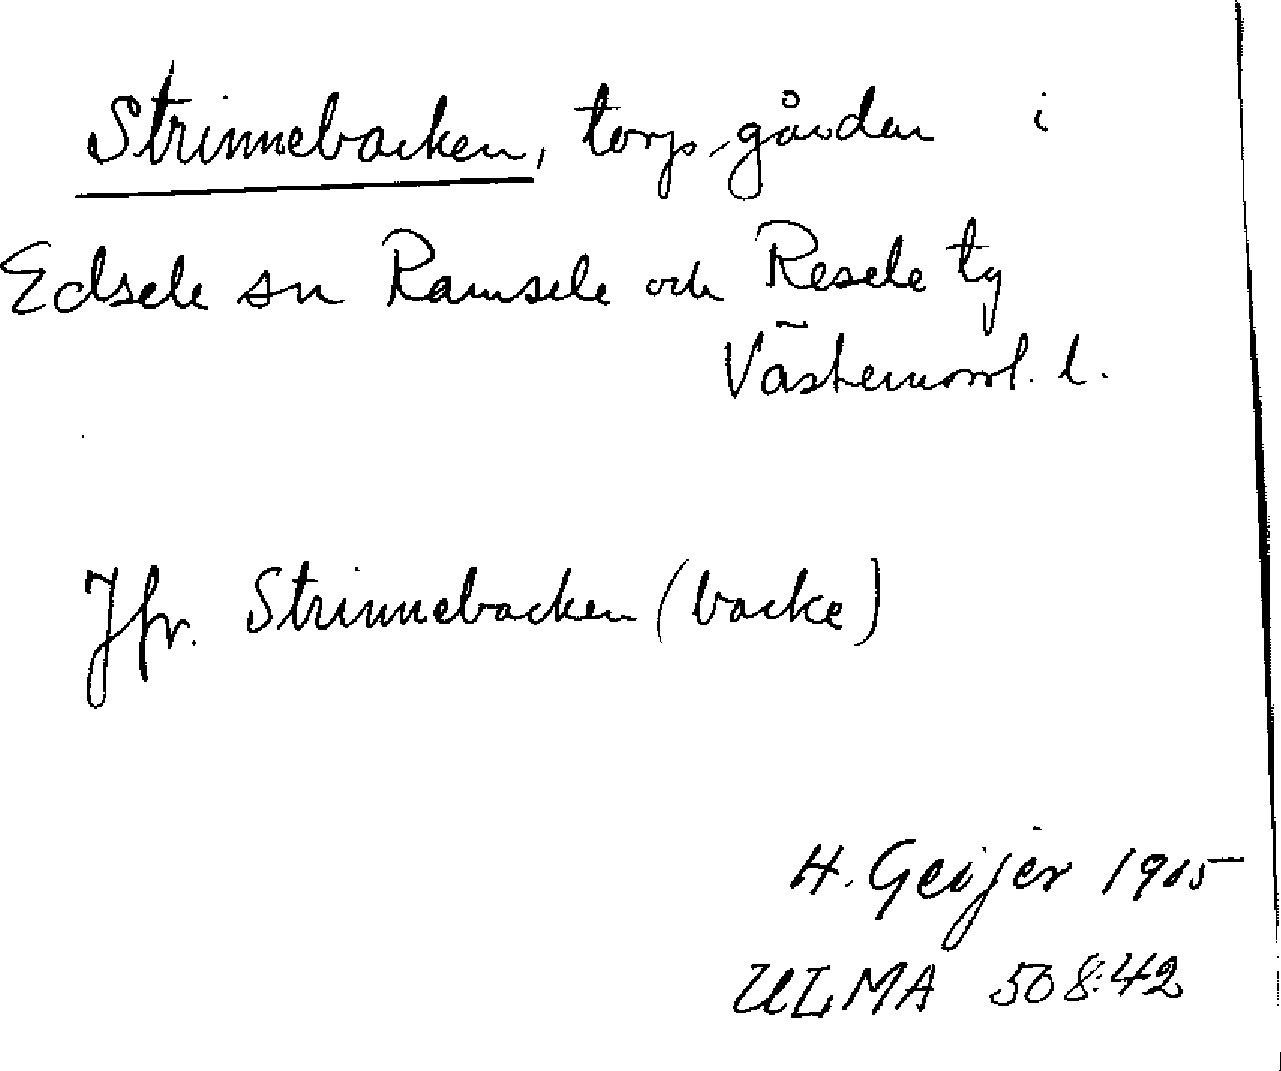 Strinnebacken, torp, gårdar i
Edsele sn Ramsele och Resele tg
Västernorrl. l.
Jfr. Strinnebacken (backe)
H. Geijer 1905
ULMA 508:42